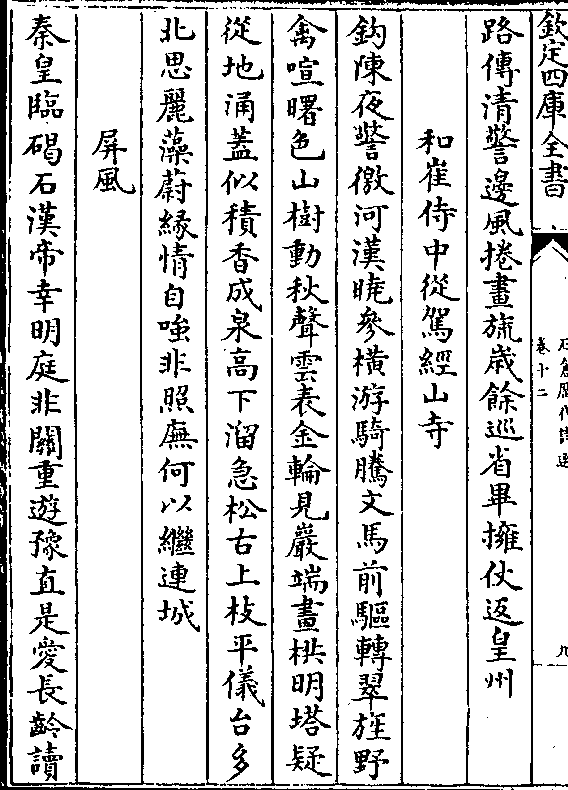 欽定四庫全書
卷十二
路傳清警邊風捲畫旒歲餘巡省畢擁仗返皇州
和崔侍中從駕經山寺
鈎陳夜警徼河漢曉參橫游騎騰文馬前驅轉翠旌野
禽喧曙色山樹動秋聲雲表金輪見巖端畫栱明塔疑
從地涌蓋似積香成泉高下溜急松古上枝平儀台多
北思麗藻蔚緣情自嗤非照廡何以繼連城
屏風
秦皇臨碣石漢帝幸明庭非關重遊豫直是愛長齡讀